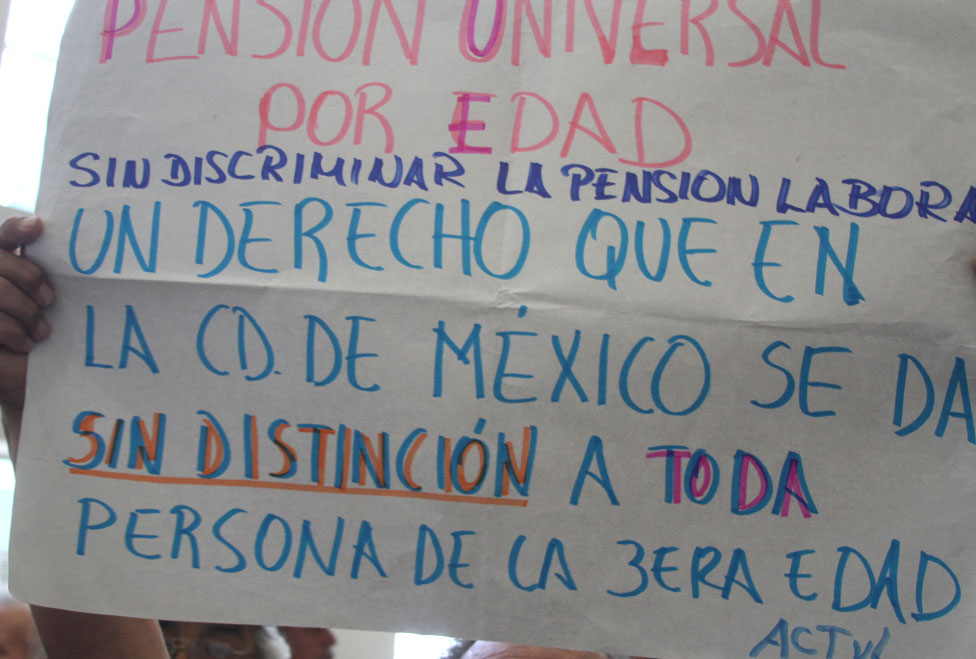 PENSIÓN UNIVERSAL
POR EDAD
SIN DISCRIMINAR LA PENSION LABORA
UN DERECHO QUE EN
LA CD. DE MÉXICO SE DA
SIN DISTINCIÓN A TODA
PERSONA DE LA 3ERA EDAD